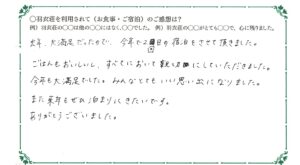 ○羽衣荘を利用されて（お食事・ご宿泊）のご感想は？
例）羽衣荘の○○は他の○○にはなく、○○でした。 例）羽衣荘の○○がとても○○で、心に残りました。
去年、大満足だったので、今年で2回目の宿泊をさせて頂きました。
ごはんもおいしいし、すべてにおいて親切にしていただきました。
今年も大満足でした。みんなとてもいい思い出になりました。
また来年もぜひ泊まりにきたいです。
ありがとうございました。